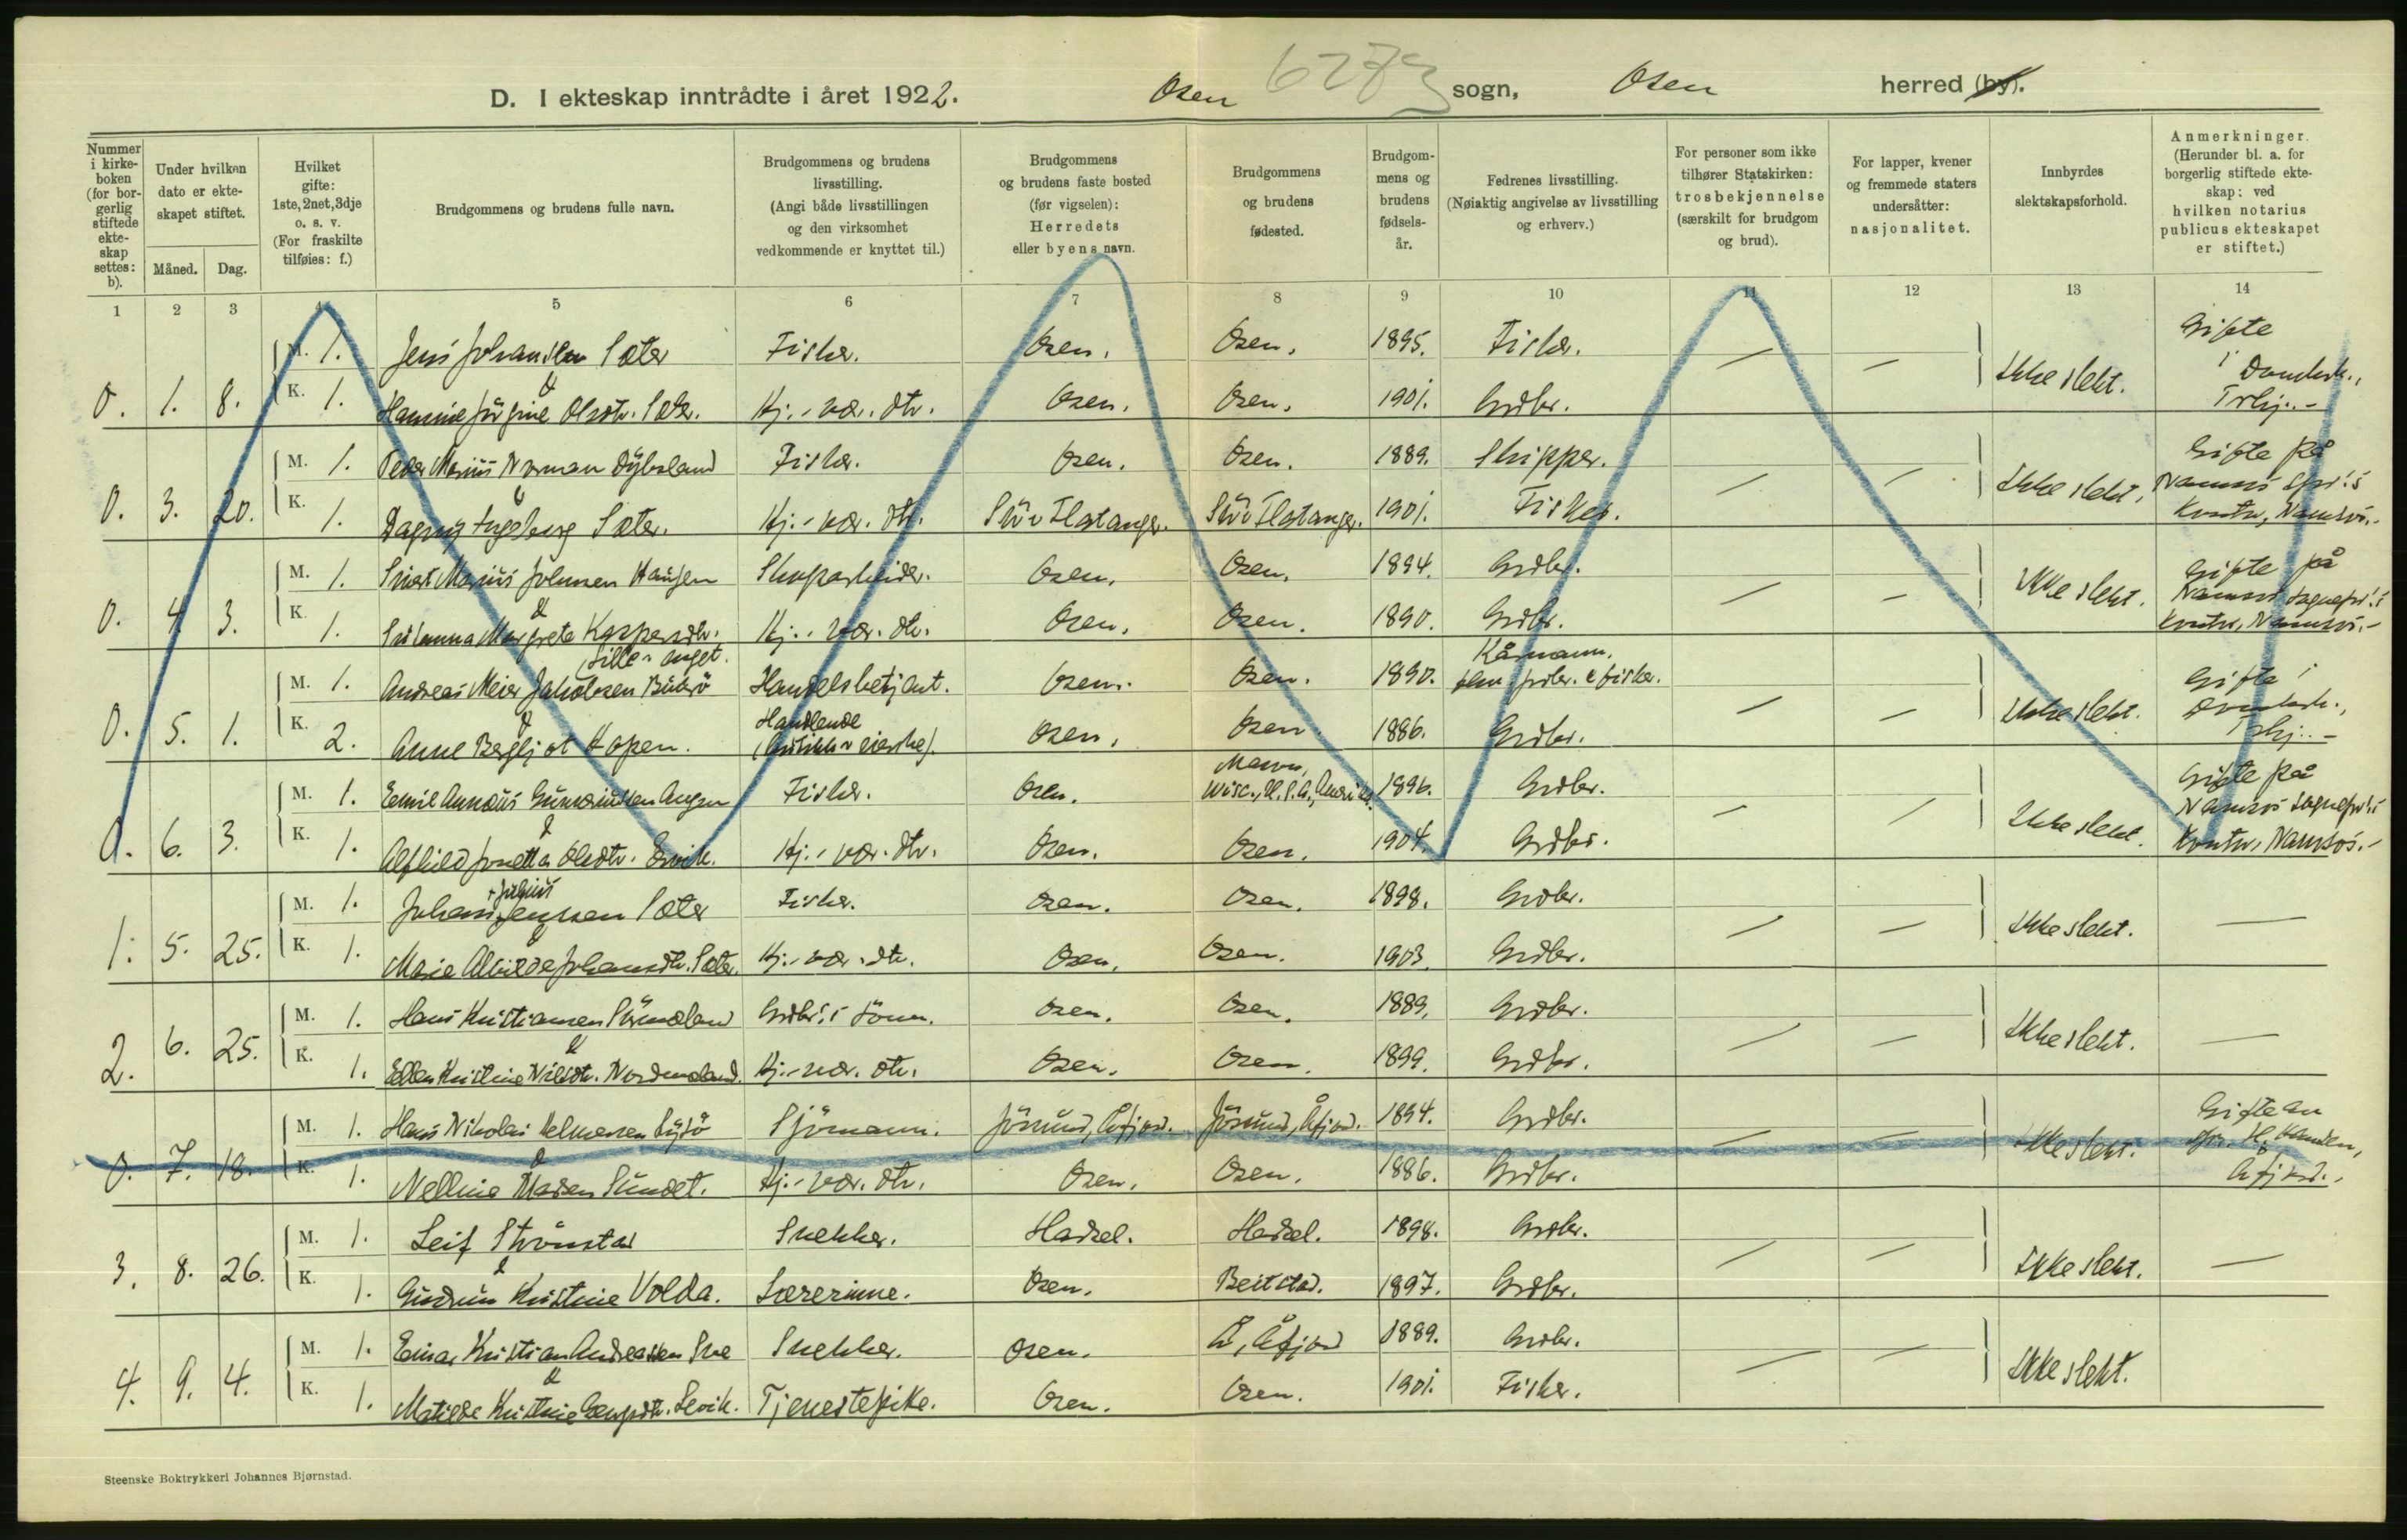 D. I ekteskap inntrådte i året 1922. Osen 6273 sogn, Osen herred (by).
Nummer i kirke-boken (for bor-gerlig stiftede ekte-skap settes: b).
Under hvilken dato er ekte-skapet stiftet.
Måned.
Dag.
Hvilket gifte: 1ste, 2net, 3dje o. s. v. (For fraskilte tilføies: f.)
Brudgommens og brudens fulle navn.
Brudgommens og brudens livsstilling. (Angi både livsstillingen og den virksomhet vedkommende er knyttet til.)
Brudgommens og brudens faste bosted (før vigselen): Herredets eller byens navn.
Brudgommens og brudens fødested.
Brudgom-mens og brudens fødsels-år.
Fedrenes livsstilling. (Nøiaktig angivelse av livsstilling og erhverv.)
For personer som ikke tilhører Statskirken: trosbekjennelse (særskilt for brudgom og brud).
For lapper, kvener og fremmede staters undersåtter: nasjonalitet.
Innbyrdes slektskapsforhold.
Anmerkninger. (Herunder bl. a. for borgerlig stiftede ekte-skap: ved hvilken notarius publicus ekteskapet er stiftet.)
1 2 3 4 5 6 7 8 9 10 11 12 13 14
M. 1. Jens Johansen Sæter Fisker. Osen. Osen. 1895. Fisker. — — Gifte i
0. 1. 8. K. 1. & Olsdtr. Sæter. Kj. - vær. dtr. Osen. Osen. 1901. Grdbr. Ikke slekt. Domk., Trhj. -
M. 1. Peder Marius Norman Fisker. Osen. Osen. 1889. Skipper. — — Gifte på
0. 3. 20. K. 1. & Dagny Ingeborg Sæter. Kj. - vær. dtr. Flatanger. Flatanger. 1901. Fisker. Ikke slekt. Namsos Kontor, Namsos. -
M. 1. Marius Johnsen Hansen Osen. Osen. 1894. Grdbr. — — Gifte på
0. 4. 3. K. 1. & Susanna Margrete Kaspersdtr. Kj. - vær. dtr. Osen. Osen. 1890. Grdbr. Ikke slekt. Namsos sognepr.'s Kontor, Namsos. -
M. 1. Andreas Meier Jakobsen Handelsbetjent. Osen. Osen. 1890. Kårmann, grdbr. & fisker. — — Gifte i
0. 5. 1. K. 2. & Anne Bergljot Hopen. Handlende (butikkeierske). Osen. Osen. 1886. Grdbr. Ikke slekt. Domk., Trhj. -
M. 1. Emil Fisker. Osen. Wisc., U.S.A., Amerika. 1896. Grdbr. — — Gifte på
0. 6. 3. K. 1. & Alfhild Olsdtr. Kj. - vær. dtr. Osen. Osen. 1904. Grdbr. Ikke slekt. Namsos sognepr.'s Kontor, Namsos. -
M. 1. Johan + Julius Jensen Sæter Fisker. Osen. Osen. 1898. Grdbr. — —
1. 5. 25. K. 1. & Marie Johansdtr. Sæter. Kj. - vær. dtr. Osen. Osen. 1903. Grdbr. Ikke slekt. —
M. 1. Hans Kristiansen Sørmeland Grdbr.'s sønn. Osen. Osen. 1889. Grdbr. — —
2. 6. 25. K. 1. & Ellen Kristine Nilsdtr. Nordmeland. Kj. - vær. dtr. Osen. Osen. 1899. Grdbr. Ikke slekt. —
M. 1. Hans Nikolai Helmersen Lysö Sjömann. Jösund, Åfjord. Jösund, Åfjord. 1894. Grdbr. — — Gifte av
0. 7. 18. K. 1. & Nelline Sundet. Kj. - vær. dtr. Osen. Osen. 1886. Grdbr. Ikke slekt. Åfjord. -
M. 1. Leif Strömstad Snekker. Hadsel. Hadsel. 1898. Grdbr. — —
3. 8. 26. K. 1. & Gudrun Kristine Volda. Lærerinne. Osen. Beitstad. 1897. Grdbr. Ikke slekt. —
M. 1. Einar Kristian Andreassen Sve Snekker. Osen. Å, Åfjord 1889. Grdbr. — —
4. 9. 4. K. 1. & Matilde Kristine Tjenestepike. Osen. Osen. 1901. Fisker. Ikke slekt.
Steenske Boktrykkeri Johannes Bjørnstad.